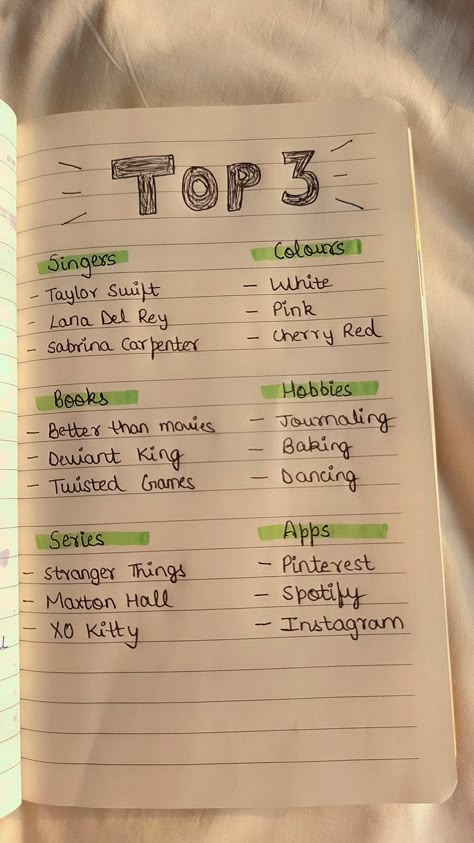 Top 3
Singers
- Taylor Swift
- Lana Del Rey
- Sabrina Carpenter
Colours
- White
- Pink
- Cherry Red
Books
- Better than movies
- Deviant King
- Twisted Games
Hobbies
- Journaling
- Baking
- Dancing
Series
- Stranger Things
- Maxton Hall
- XO Kitty
Apps
- Pinterest
- Spotify
- Instagram